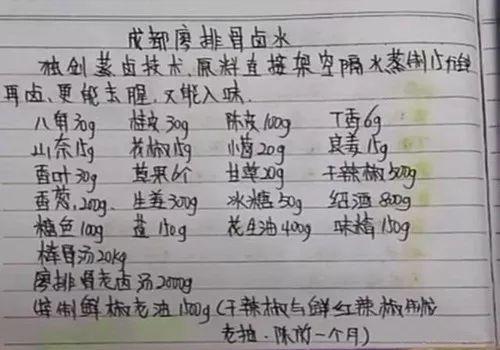 成都廖排骨卤水
独创蒸卤技术,原料直接架空隔水蒸制15分钟
再卤,更能去腥,又能入味.
八角30g 桂皮30g 陈皮100g 丁香6g
山奈15g 花椒15g 小茴20g 良姜15g
香叶30g 草果6个 甘草20g 干辣椒500g
香葱,200g. 生姜300g 冰糖50g 绍酒800g
糖色100g 盐150g 花生油400g 味精150g
棒骨汤20kg
廖排骨老卤汤2000g
(特制鲜椒老油1500g(干辣椒与鲜红辣椒
老抽.陈 一个月)